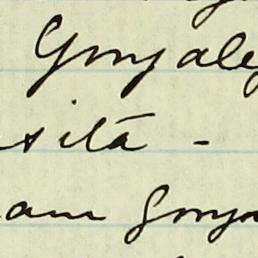 Gonzale
sità -
am Gonza